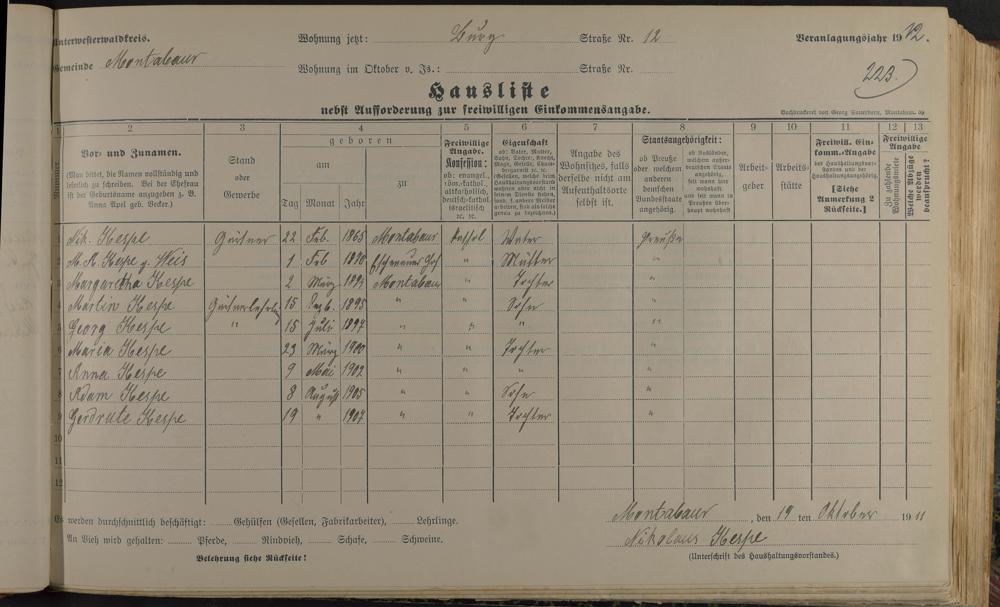 Unterwesterwaldkreis. Wohnung jetzt: Burg Straße Nr. 12 Veranlagungsjahr 1912.
Gemeinde Montabaur Wohnung im Oktober v. Js.: Straße Nr. 223.
Hausliste
nebst Aufforderung zur freiwilligen Einkommensangabe.
Buchdruckerei von Georg Sauerborn, Montabaur.
1 2 3 4 5 6 7 8 9 10 11 12 13
Vor- und Zunamen.
(Man bittet, die Namen vollständig und
leserlich zu schreiben. Bei der Ehefrau
ist der Geburtsname anzugeben z. B.
Anna Apel geb. Becker.)
Stand
oder
Gewerbe
geboren
am zu
Tag Monat Jahr
Freiwillige
Angabe.
Konfession:
ob: evangel.,
röm.-kathol.,
altkatholisch,
deutsch-kathol.
israelitisch
rc. rc.
Eigenschaft
ob: Vater, Mutter,
Sohn, Tochter, Knecht,
Magd, Geselle,
Angabe des
Wohnsitzes, falls
derselbe nicht am
Aufenthaltsorte
selbst ist.
Staatsangehörigkeit:
ob Preuße
oder welchem
anderen
deutschen
Bundesstaate
angehörig.
ob Ausländer,
welchem außer-
deutschen Staate
angehörig,
seit wann ihre
wohnhaft
und seit wann
in Preußen über-
haupt wohnhaft
Arbeit-
geber
Arbeits-
stätte
Freiwill. Ein-
komm.-Angabe
der Haushaltungsvor-
standes und der
Haushaltungsangehörig.
[Siehe
Anmerkung 2
Rückseite.]
Freiwillige
Angabe.
Zu zahlende
Wohnungsmiete
Welche Abzüge
werden
beansprucht?
1 Nik. Hespe Gärtner 22 Feb. 1865 Montabaur kathol Vater Preuße
M. A. Hespe g. Weis 1 Feb " Mutter "
3 Margaretha Hespe 2 März Montabaur " Tochter "
4 Martin Hespe Gärtnerlehrling 15 Dezb. 1895 " " Sohn "
5 Georg Hespe " 15 Juli 1897 " " " "
6 Maria Hespe 23 März 1900 " " Tochter "
7 Anna Hespe 9 Mai 1902 " " "
8 Adam Hespe 8 August 1905 " " Sohn "
9 Gerdrute Hespe 19 " 1907 " " Tochter "
10
11
12
Es werden durchschnittlich beschäftigt: Gehülfen (Gesellen, Fabrikarbeiter), Lehrlinge.
Montabaur, den 19 ten Oktober 1911
An Vieh wird gehalten: Pferde, Rindvieh, Schafe, Schweine.
Nikolaus Hespe
Belehrung siehe Rückseite!
(Unterschrift des Haushaltungsvorstandes.)